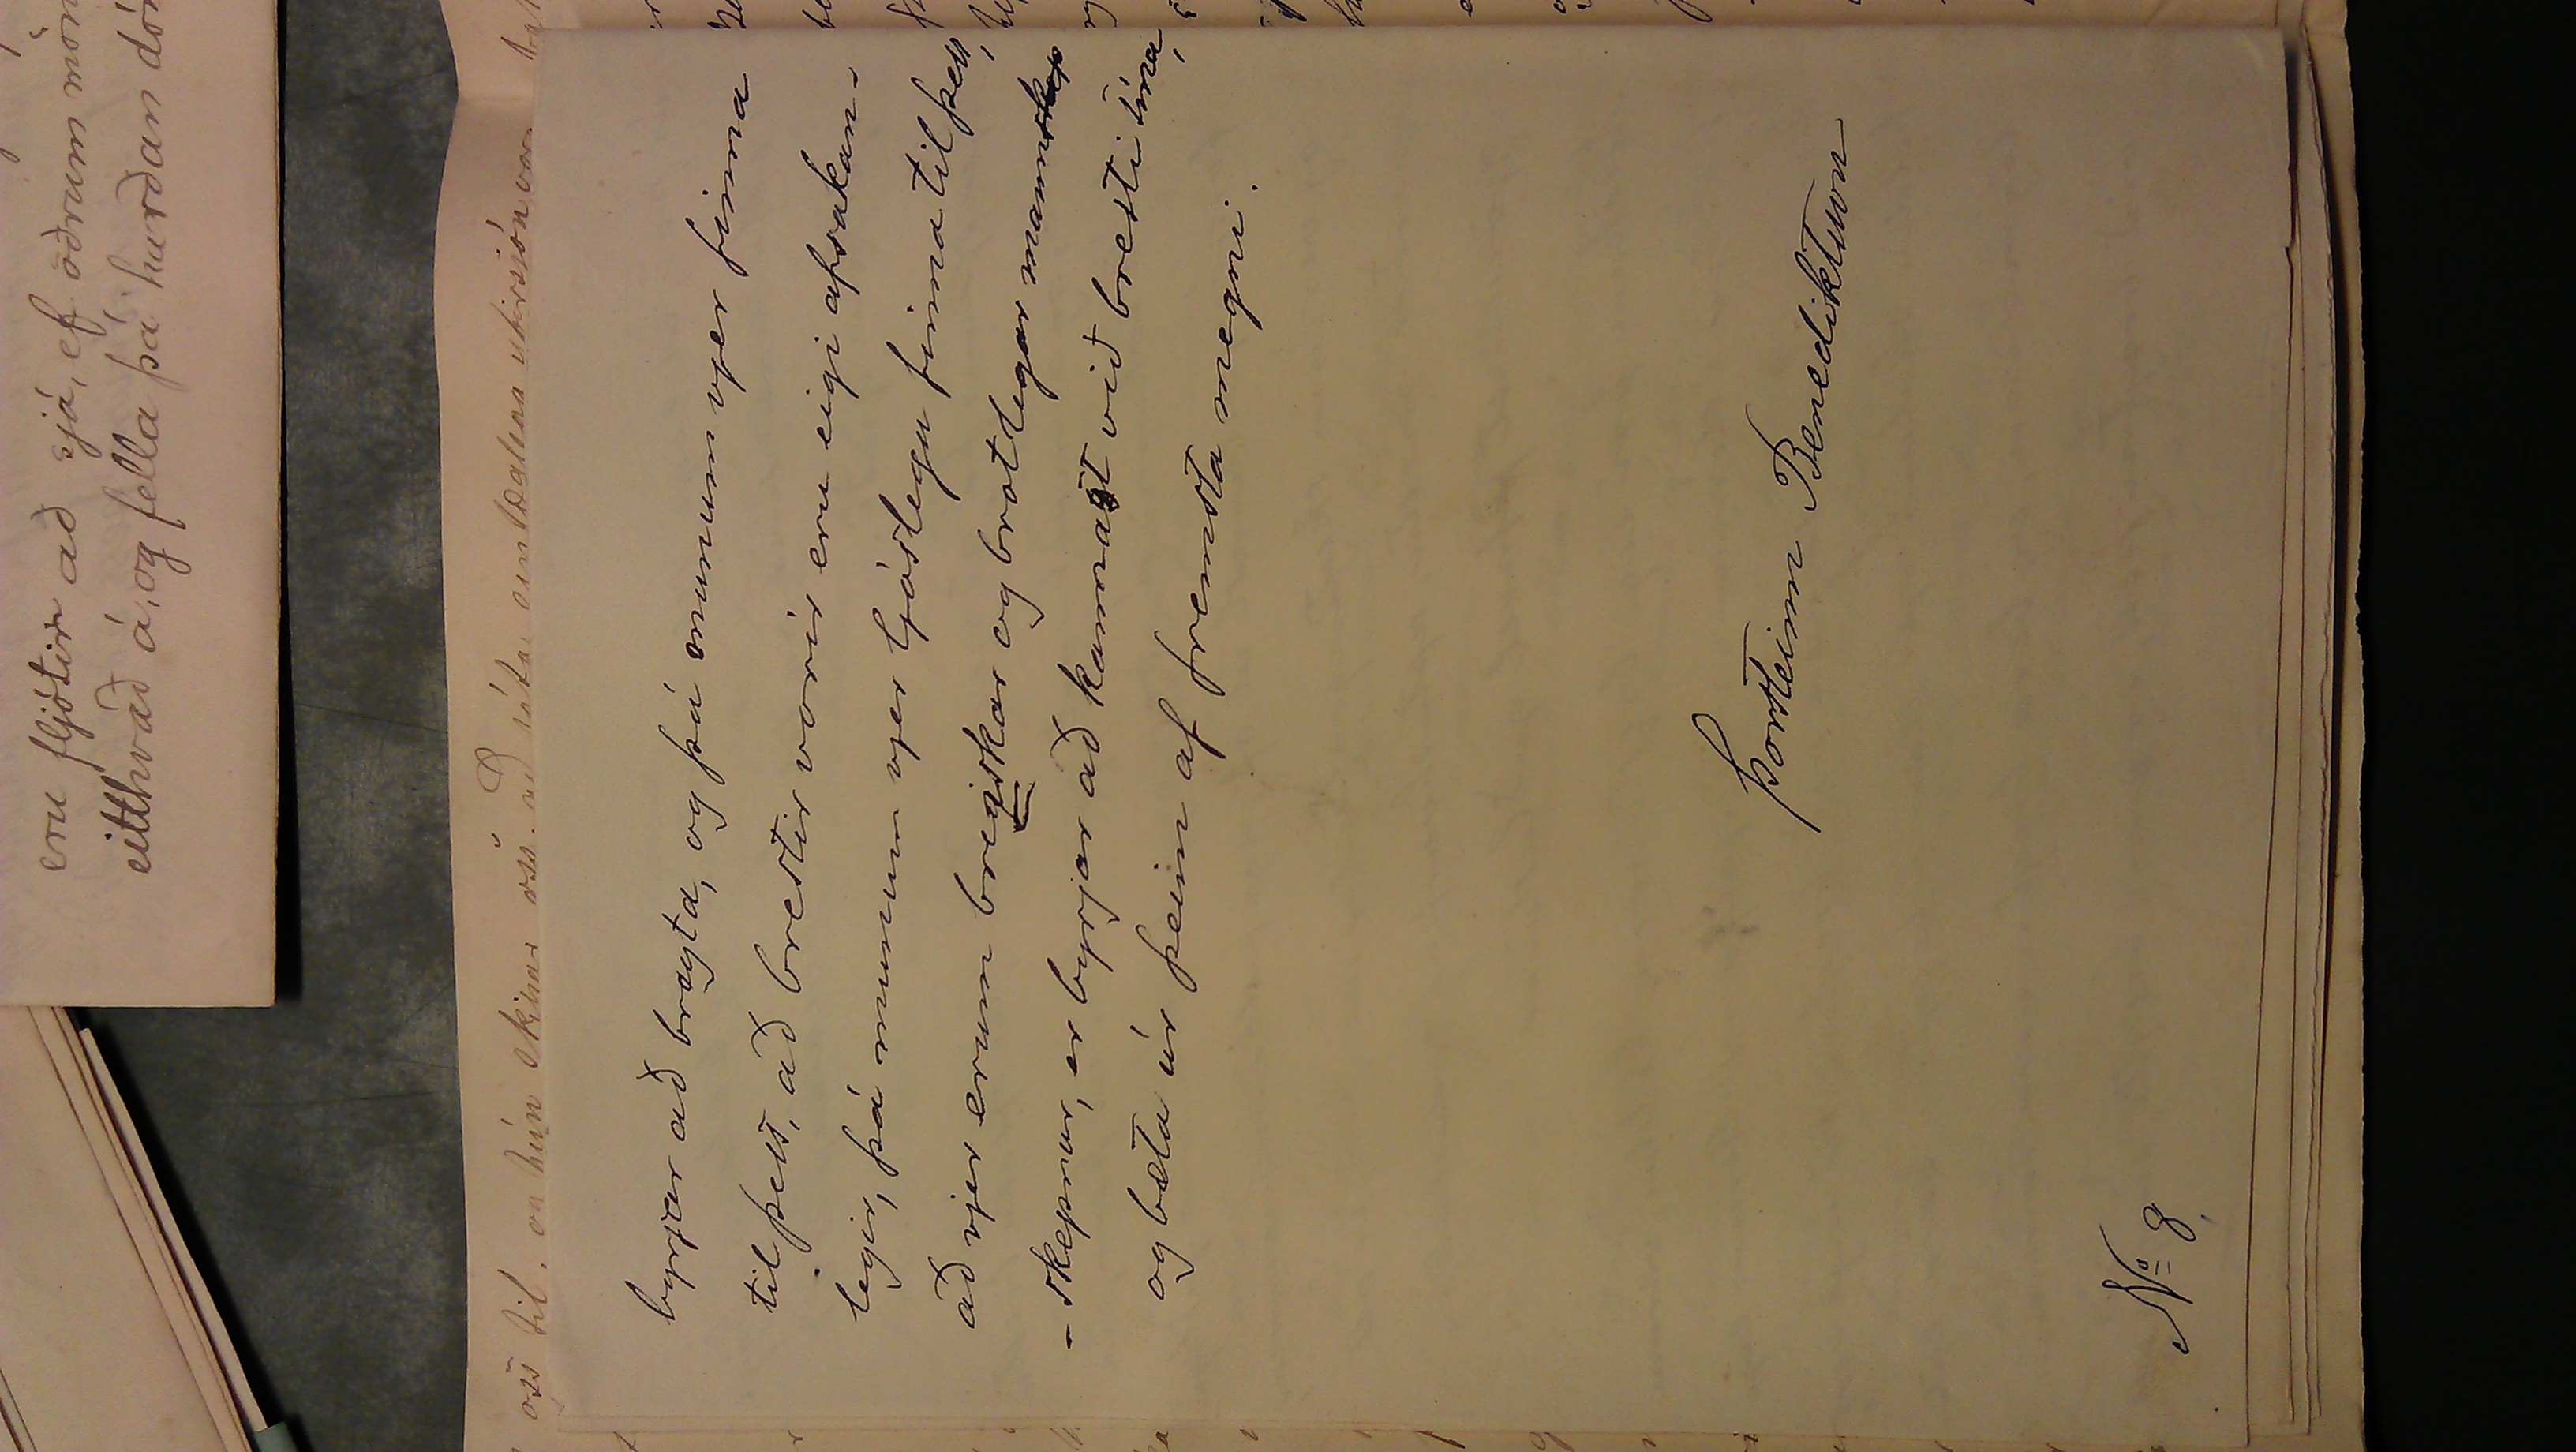 eru fljótir að sjá, ef öðrum
eitthvað á, og fella þá hurðan
oss til. en hún skipar oss
byrjar að breyta, og þá munum vjer finna
til þess, að brestir vorir eru eigi afsakan-
legir, þá munum vjer ljóslega finna til þess,
að vjer erum breiskar og brotlegar mannskap
-skepnur, er byrjar að kannast við bresti sína,
og bæta úr þeim af fremsta megni.
Þorsteinn Benediktsson
No 8.